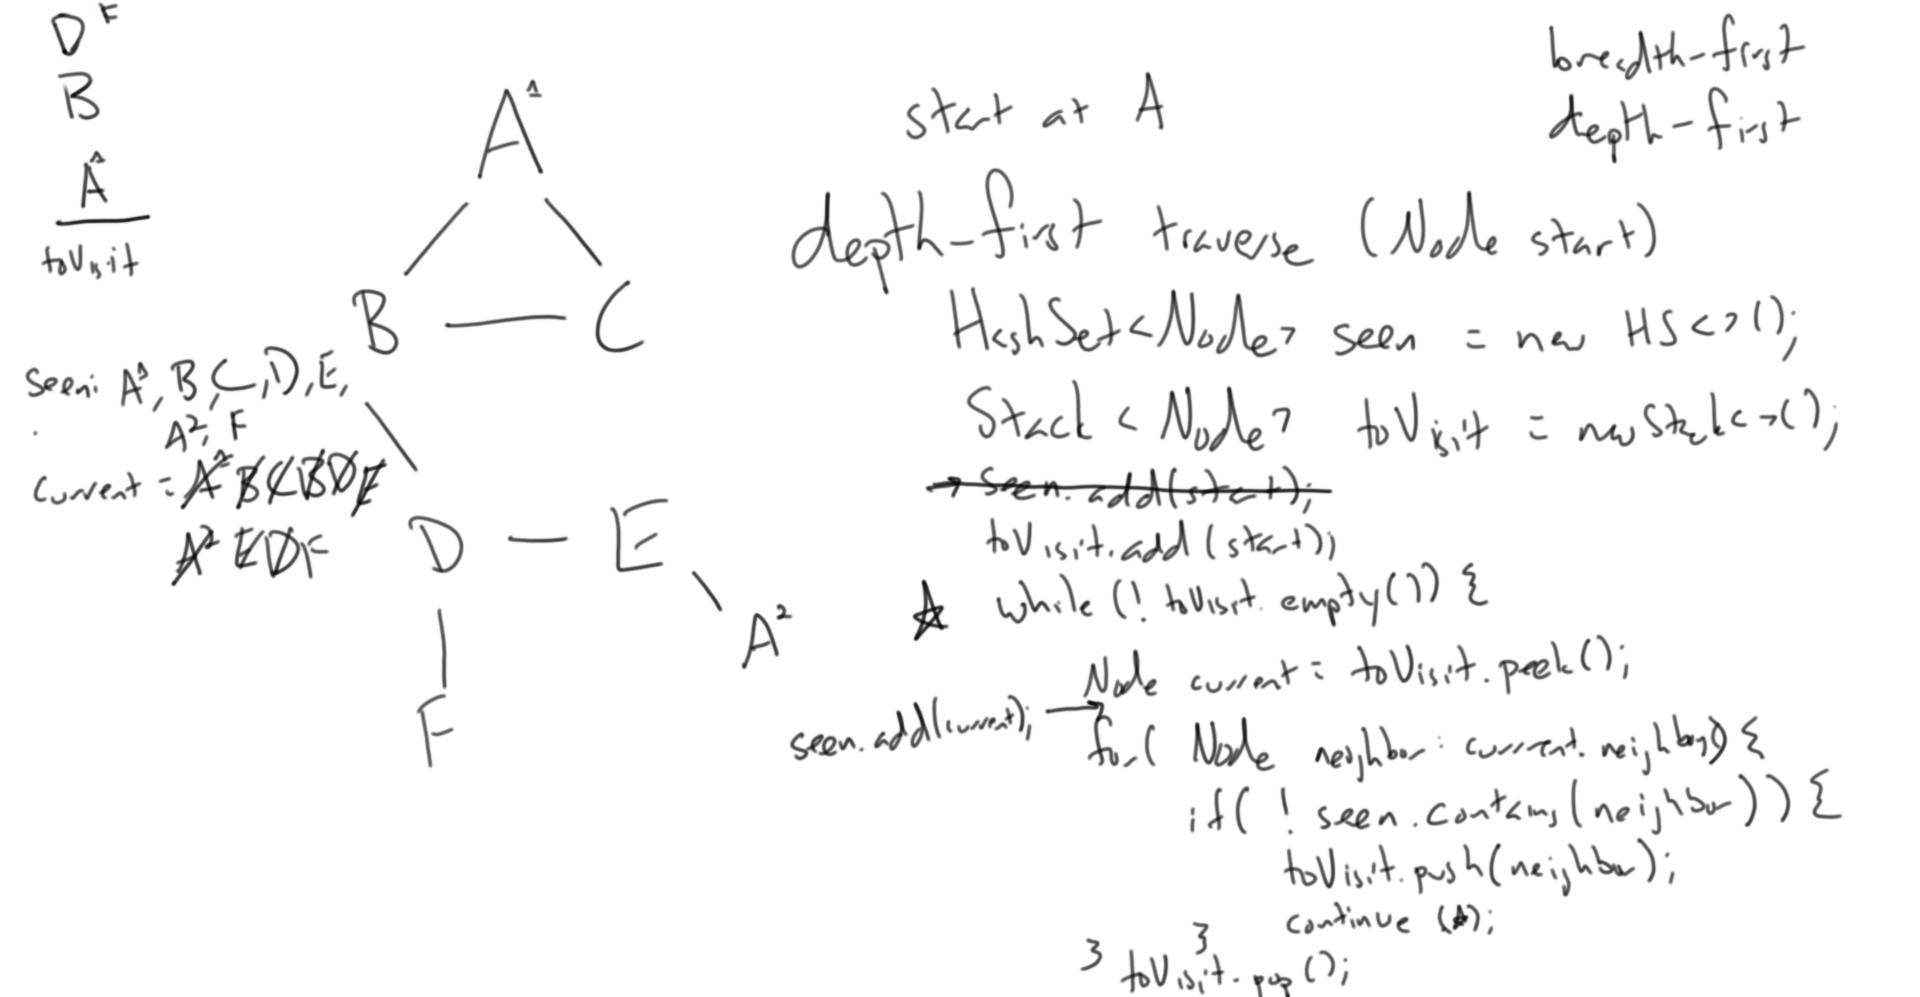 D F
B
A¹
toVisit
A¹
B C
D E
A²
F
Seen: A¹, B, C, D, E,
A², F
current = A¹ B C B D E
A² E D F
start at A
breadth-first
depth-first
depth-first traverse (Node start)
HashSet<Node> seen = new HS<>();
Stack<Node> toVisit = new Stack<>();
→ seen.add(start);
toVisit.add(start);
while (! toVisit.empty()) {
Node current = toVisit.peek();
seen.add(current); →
for( Node neighbor : current.neighbors) {
if( ! seen.contains(neighbor)) {
toVisit.push(neighbor);
continue (☆);
}
} toVisit.pop();